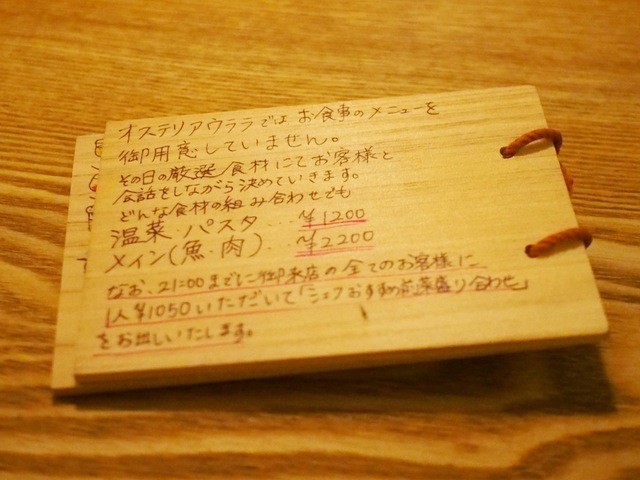 オステリアウララではお食事のメニューを
御用意していません。
その日の厳選食材にてお客様と
会話をしながら決めていきます。
どんな食材の組み合わせでも
温菜・パスタ…¥1200
メイン(魚・肉)…¥2200
なお、21:00までに御来店の全てのお客様に
1人¥1050いただいて「シェフおすすめ前菜盛り合わせ」
をお出しいたします。